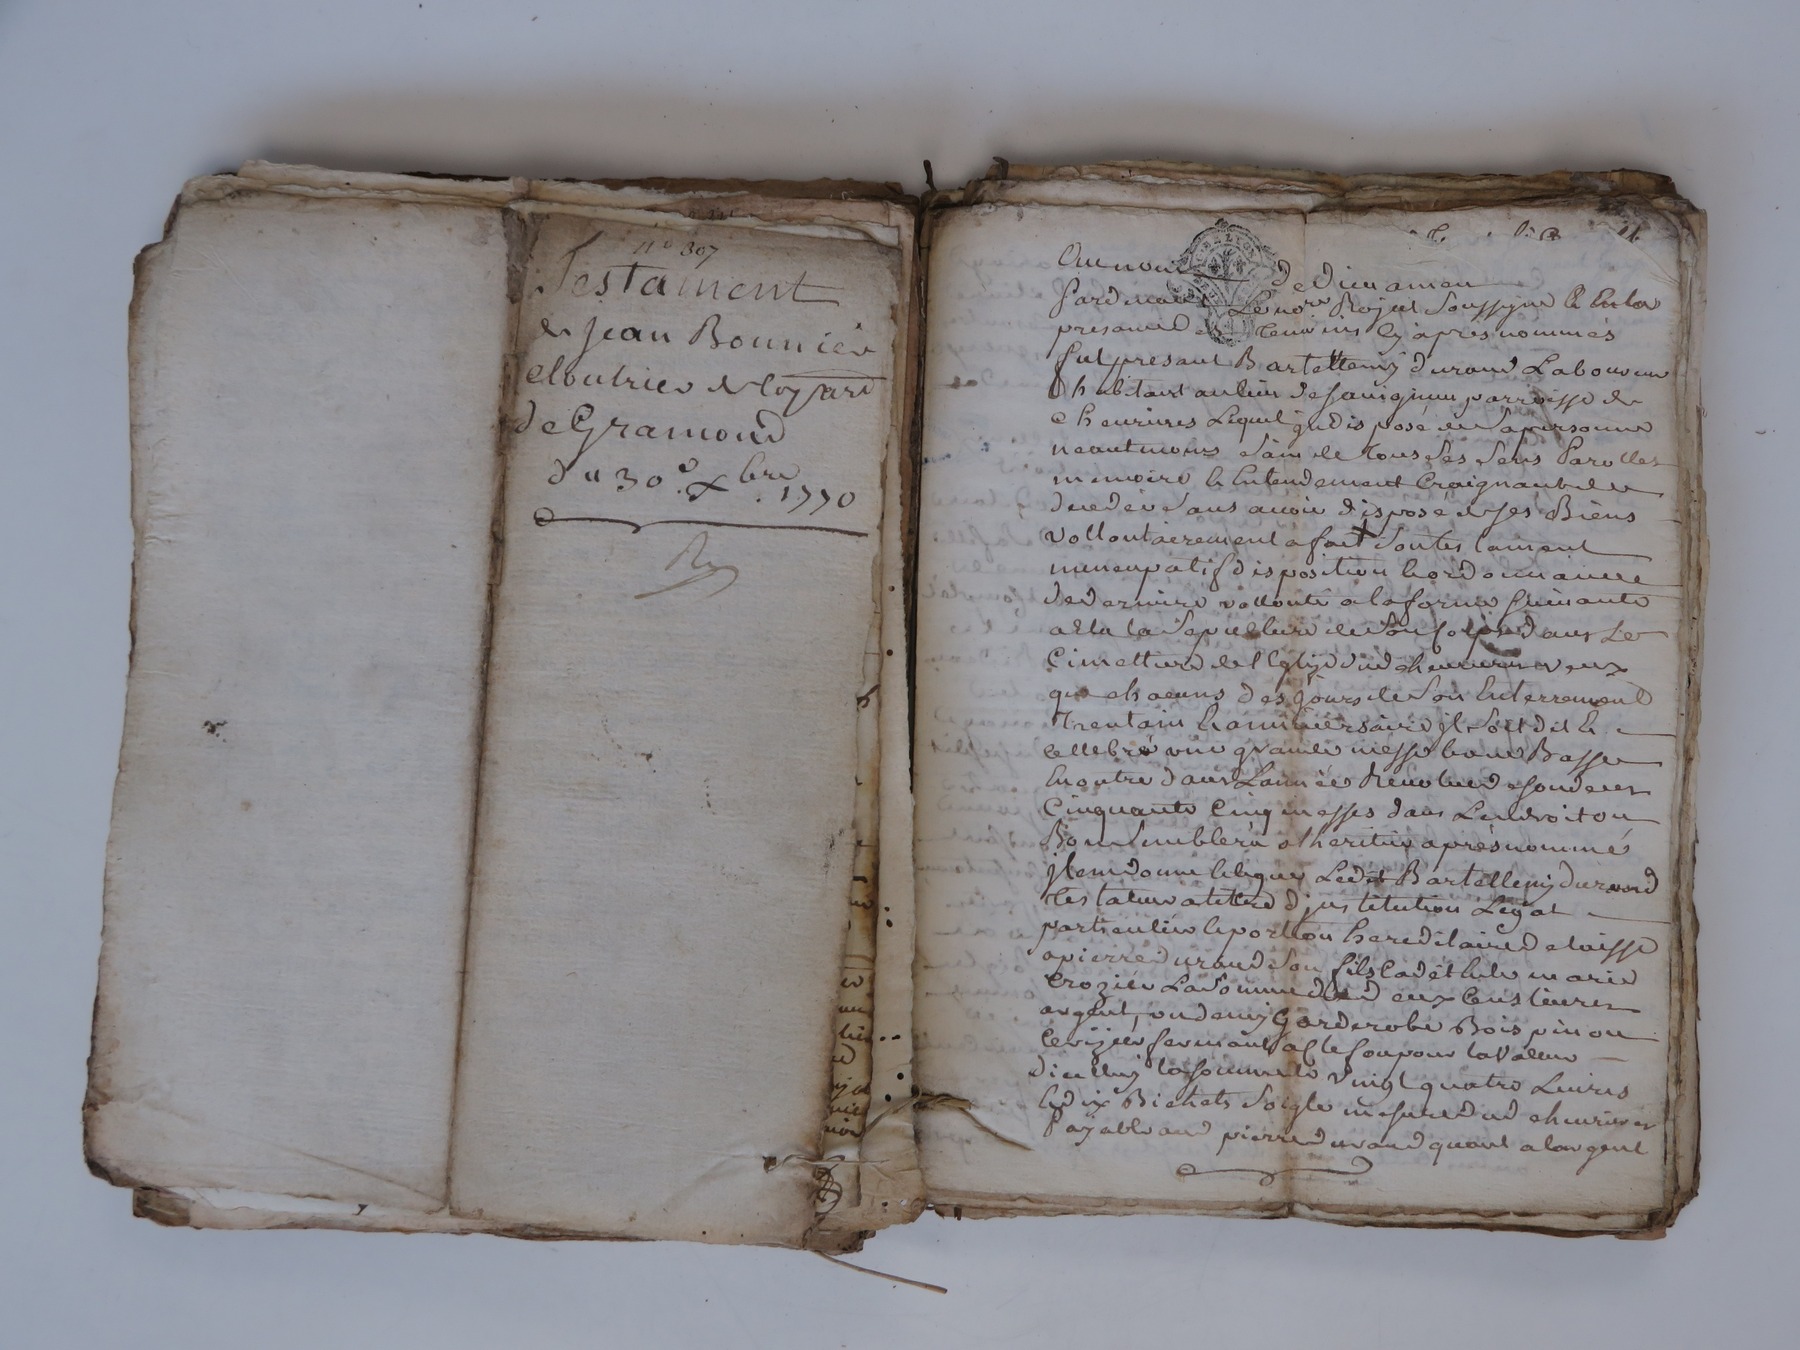 n° 307
Testament
de Jean Bonnier
cloutrier de Coyard
de Gramond
du 30e Xbre 1770
Au nom de Dieu amen
Pardevant Le nore Royal soussigné & En la
presance des Temoins cy après nommés
fut presant Bartellemy durand Laboureur
habitant au lieu de parroisse de
cheurieres Lequel indisposé de sa personne
neantmoins sain de tous ses sens Parolles
memoire & Entendement Craignant de
deceder sans avoir disposé de ses Biens
vollontairement a fait son testament
nuncupatif disposition & ordonnance
de derniere vollonté a la forme suivante
a Elu la sepulture de son Corps dans Le
Cimettiere de l'Eglize dud cheurieres veux
que chacuns des jours de son Enterrement
Trentain & anniversaire jl soit dit &
cellebré une grande messe & une Basse
En outre dans L'année Revolue de son deces
Cinquante Cinq messes dans L'endroit ou
Bon semblera a l'heritier après nommé
jtem donne & legue Ledit Bartellemy durand
testateur a titre d'jnstitution Legat
particulier & portion hereditaire delaisse
a pierre durand son fils Cadet & de marie
Crozier La somme de deux Cens livres
argent, un demy Garderobe Bois pin ou
Cerizier fermant a Clef ou pour la valeur
d'icelluy la somme de vingt quatre Livres
& dix Bichets soigle mesure dud cheurieres
Payable aud pierre durand quant a l'argent